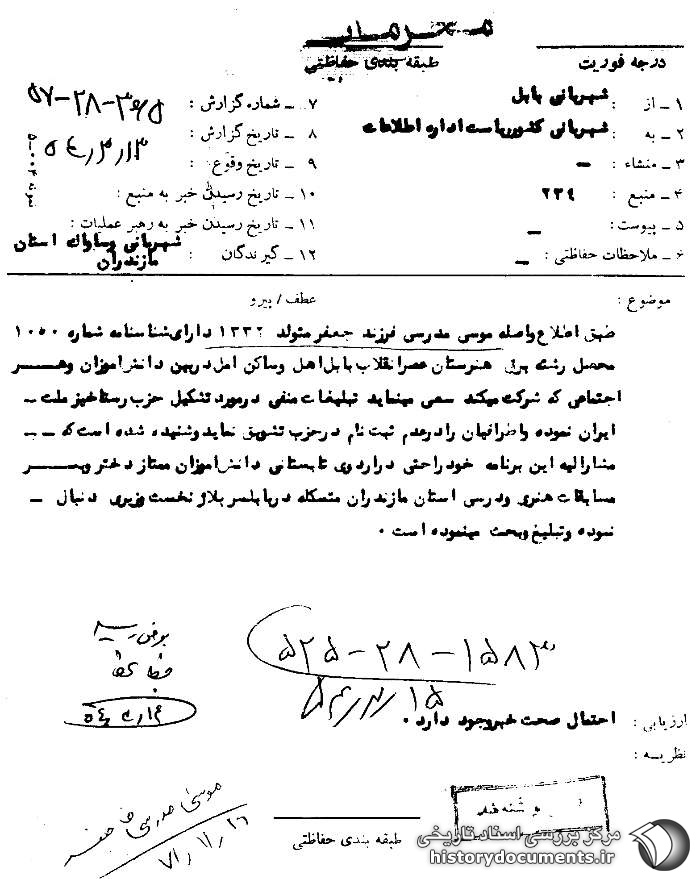 محرمانه
درجه فوریت
طبقه بندی حفاظتی
۱ ـ از : شهربانی بابل
۲ ـ به : شهربانی کشور ریاست اداره اطلاعات
۳ ـ منشاء : ـ
۴ ـ منبع : ۲۳۴
۵ ـ پیوست : ـ
۶ ـ ملاحظات حفاظتی : ـ
۷ ـ شماره گزارش :
۸ ـ تاریخ گزارش :
۹ ـ تاریخ وقوع :
۱۰ ـ تاریخ رسیدن خبر به منبع :
۱۱ ـ تاریخ رسیدن خبر به رهبر عملیات :
۱۲ ـ گیرندگان : شهربانی و ساواک استان
مازندران
موضوع :
عطف / پیرو
طبق اطلاع واصله موسی مدرسی فرزند جعفر متولد ۱۳۳۲ دارای شناسنامه شماره ۱۰۵۰
محصل رشته برق هنرستان عصر انقلاب بابل اهل و ساکن امل در بین دانش اموزان و هر
اجتماعی که شرکت میکند سعی مینماید تبلیغات منفی در مورد تشکیل حزب رستاخیز ملت ـ
ایران نموده و اطرافیان را در عدم ثبت نام در حزب تشویق نماید و شنیده شده است که ـ
مشارالیه این برنامه خود را حتی در اردوی تابستانی دانش اموزان ممتاز دختر و پسر
مسابقات هنری و درسی استان مازندران متشکله در بابلسر پلاژ نخست وزیری دنبال ـ
نموده و تبلیغ و بحث مینموده است ۰
۵۲۵-۲۸-۱۵۸۳
ارزیابی : احتمال صحت خبر وجود دارد ۰
نظریه :
موسی مدرسی ف جعفر
۷۱/۱۱/۲۶
طبقه بندی حفاظتی
مرکز بررسی اسناد تاریخی
historydocuments.ir